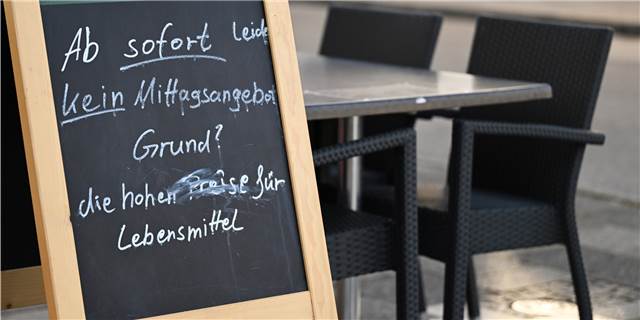 Ab sofort Leider
kein Mittagsangebot
Grund?
die hohen Preise für
Lebensmittel